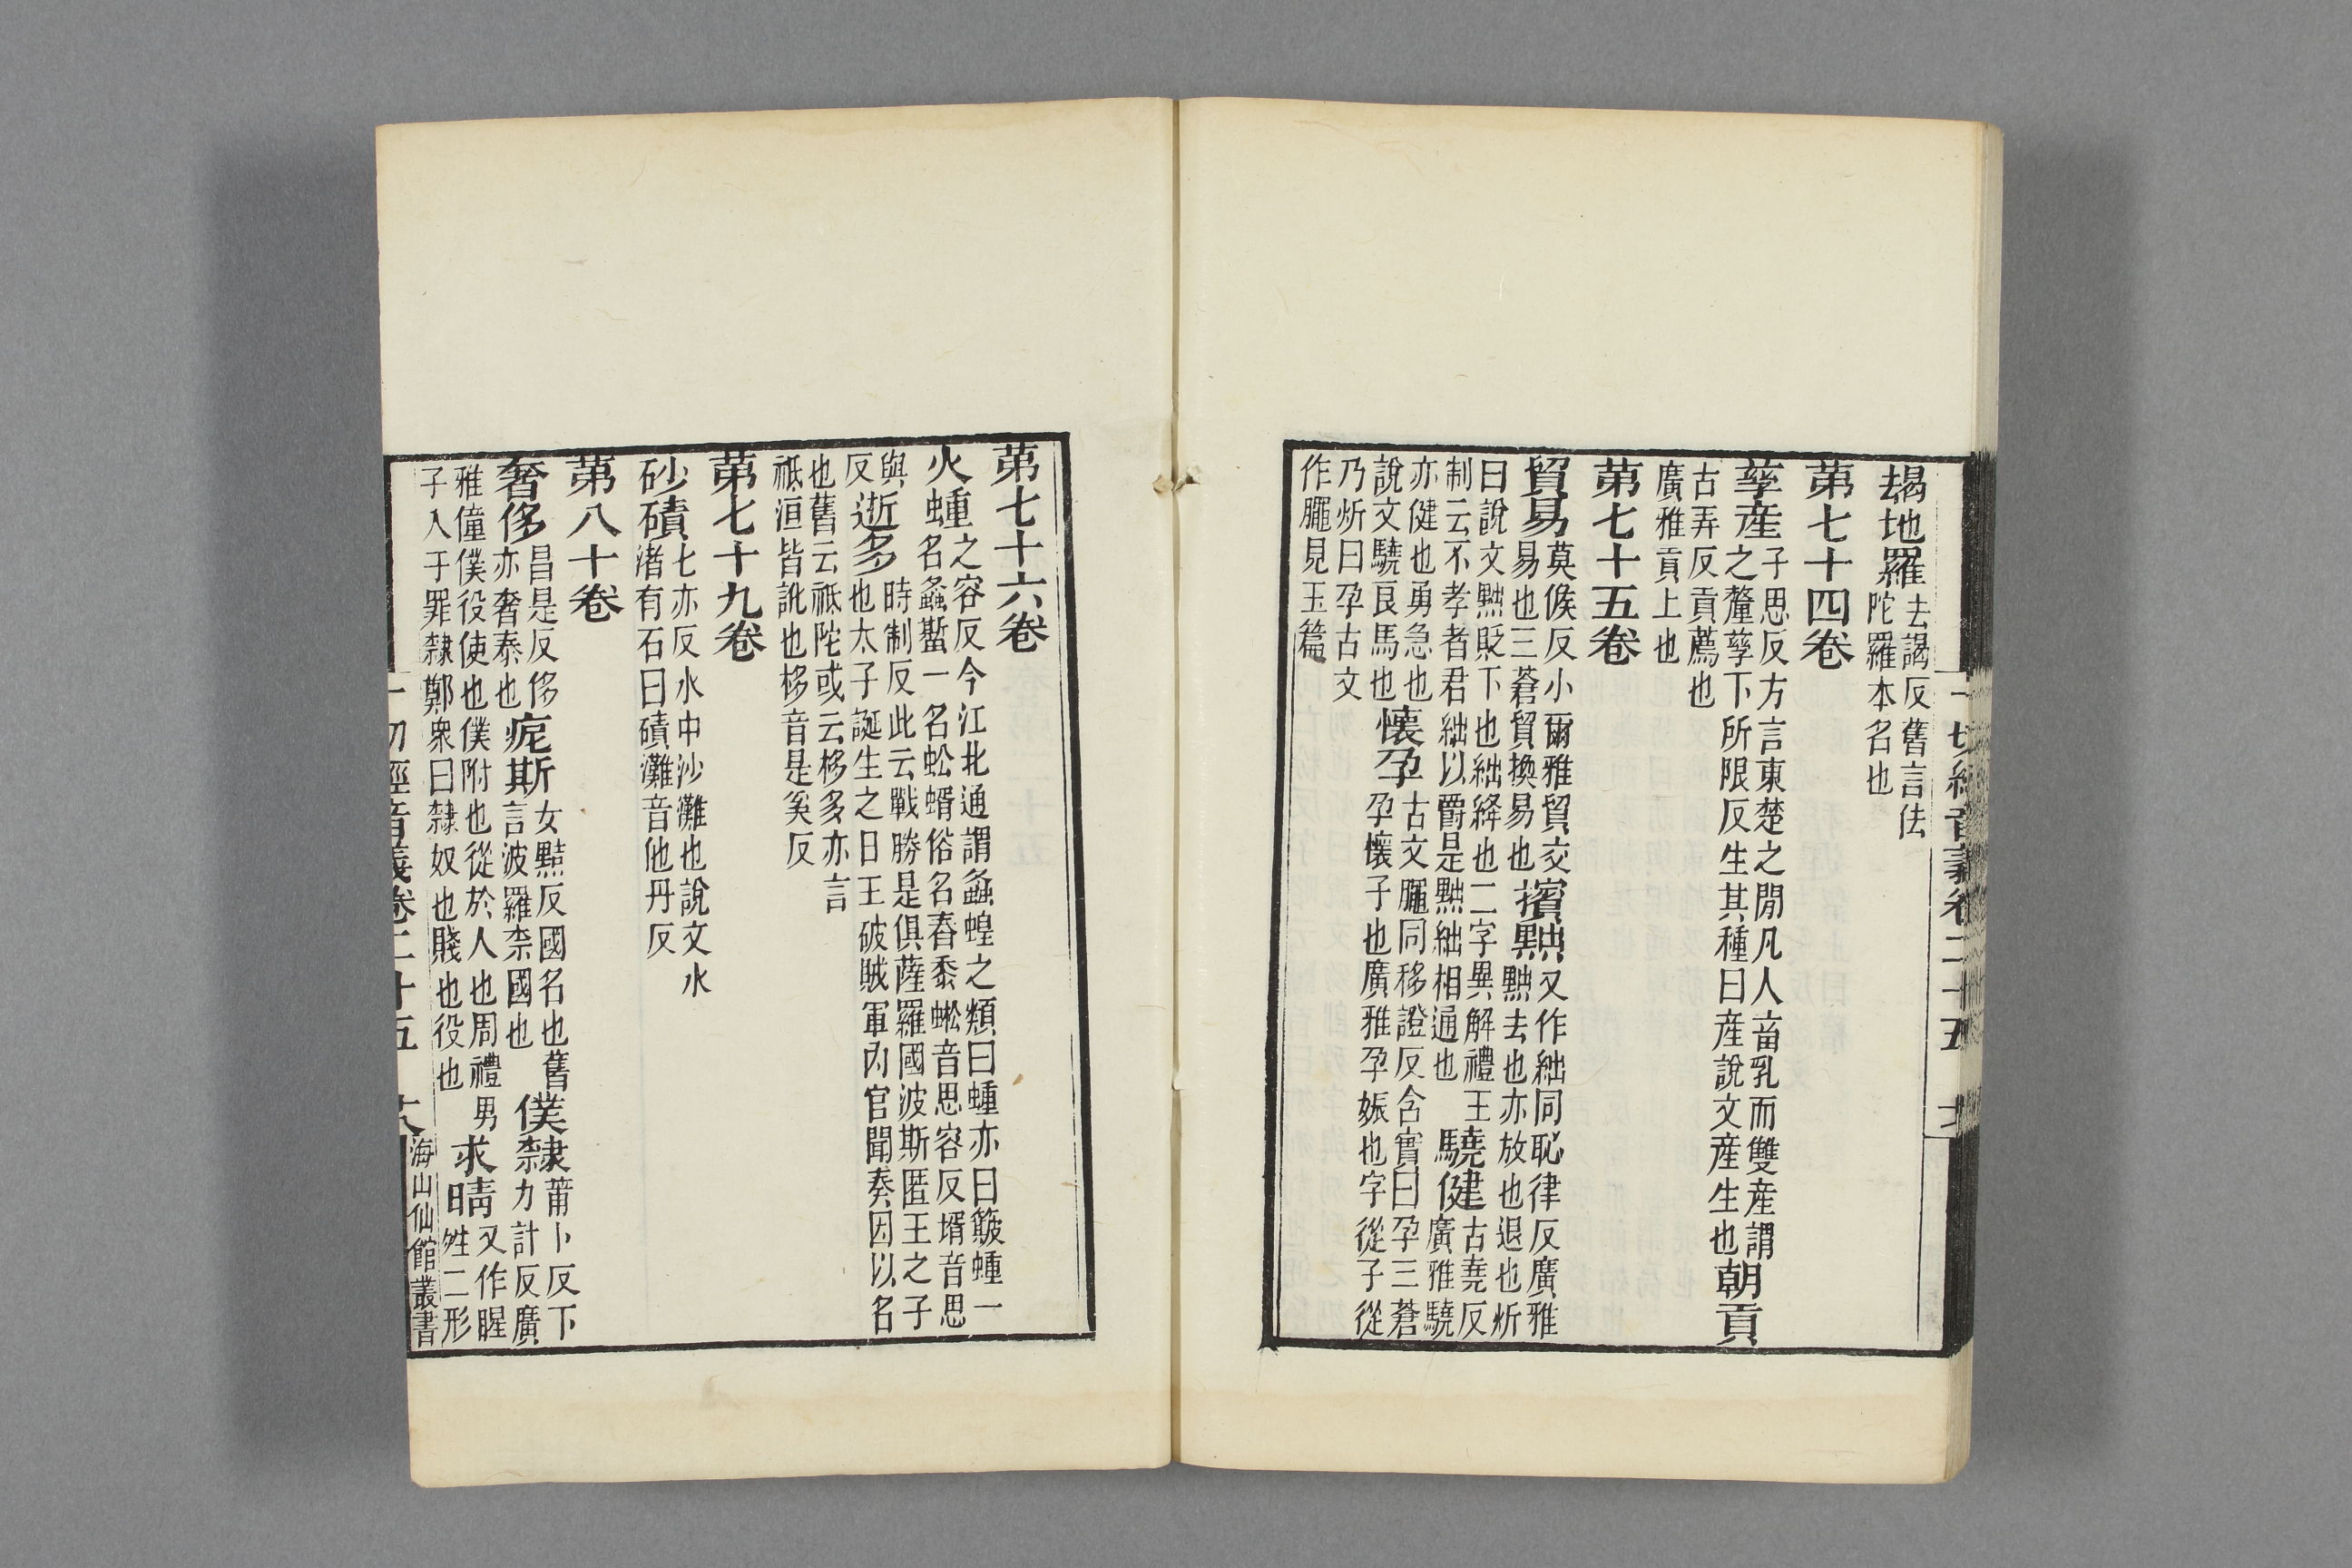 朅地羅去謁反舊言佉陀羅本名也
第七十四卷
孳產子思反方言東楚之閒凡人嘼乳而雙產謂之釐孳下所限反生其種曰產說文產生也朝貢
古弄反貢薦也廣雅貢上也
第七十五卷
貿易莫候反小爾雅貿交易也三蒼貿換易也擯黜又作絀同恥律反廣雅黜去也亦放也退也炘
曰說文黜貶下也絀絳也二字異解禮王制云不孝者君絀以爵是黜絀相通也驍健古堯反廣雅驍
亦健也勇急也說文驍良馬也懷孕古文同移證反含實曰孕三蒼孕懷子也廣雅孕娠也字從子從
乃炘曰孕古文作見玉篇
一切經音義卷二十五
第七十六卷
火蝩之容反今江北通謂螽蝗之類曰蝩亦曰簸蝩一名螽蟴一名蚣蝑俗名舂黍蜙音思容反蝑音思
與反逝多時制反此云戰勝是俱薩羅國波斯匿王之子也太子誕生之日王破賊軍內官聞奏因以名
也舊云祇陀或云栘多亦言祇洹皆訛也栘音是奚反
第七十九卷
砂磧七亦反水中沙灘也說文水渚有石曰磧灘音他丹反
第八十卷
奢侈昌是反侈亦奢泰也㾆斯女黠反國名也舊言波羅柰國也僕隸蒲卜反下力計反廣
雅僮僕役使也僕附也從於人也周禮男子入于罪隸鄭衆曰隸奴也賤也役也求晴又作暒夝二形
一切經音義卷二十五 六
海山仙館叢書